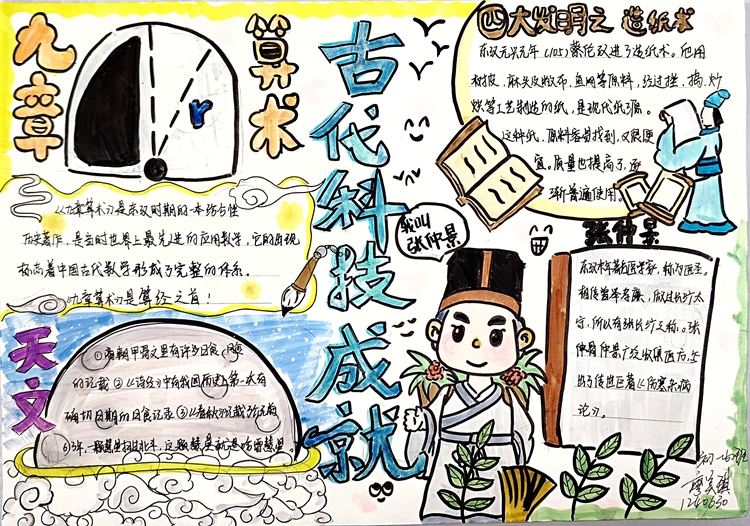 九章
算术
r
《九章算术》是东汉时期的一本综合性
历史著作，是当时世界上最先进的应用数学，它的出现
标尚着中国古代数学形成了完整的体系。
《九章算术》是算经之首！
天文
①商朝甲骨文里有许多日食、月食
的记载②《诗经》中有我国历史上第一次有
确切日期的日食记录③《春秋》记载
613年，
这颗彗星就是哈雷彗星。
古代科技成就
四大发明之 造纸术
东汉元兴元年(105)蔡伦改进了造纸术。他用
树皮、麻头及敝布、鱼网等原料，经过挫、捣、炒
烘等工艺制造的纸，是现代纸的源。
这种纸，原料容易找到，又很便
宜。质量也提高了，逐
渐普遍使用。
我叫
张仲景
张仲景
东汉末年著名医学家，称为医圣。
相传曾举孝廉，做过长沙太
守，所以有张长沙之称。张
仲景广泛收集医方，
出了传世巨著《伤寒杂病
论》。